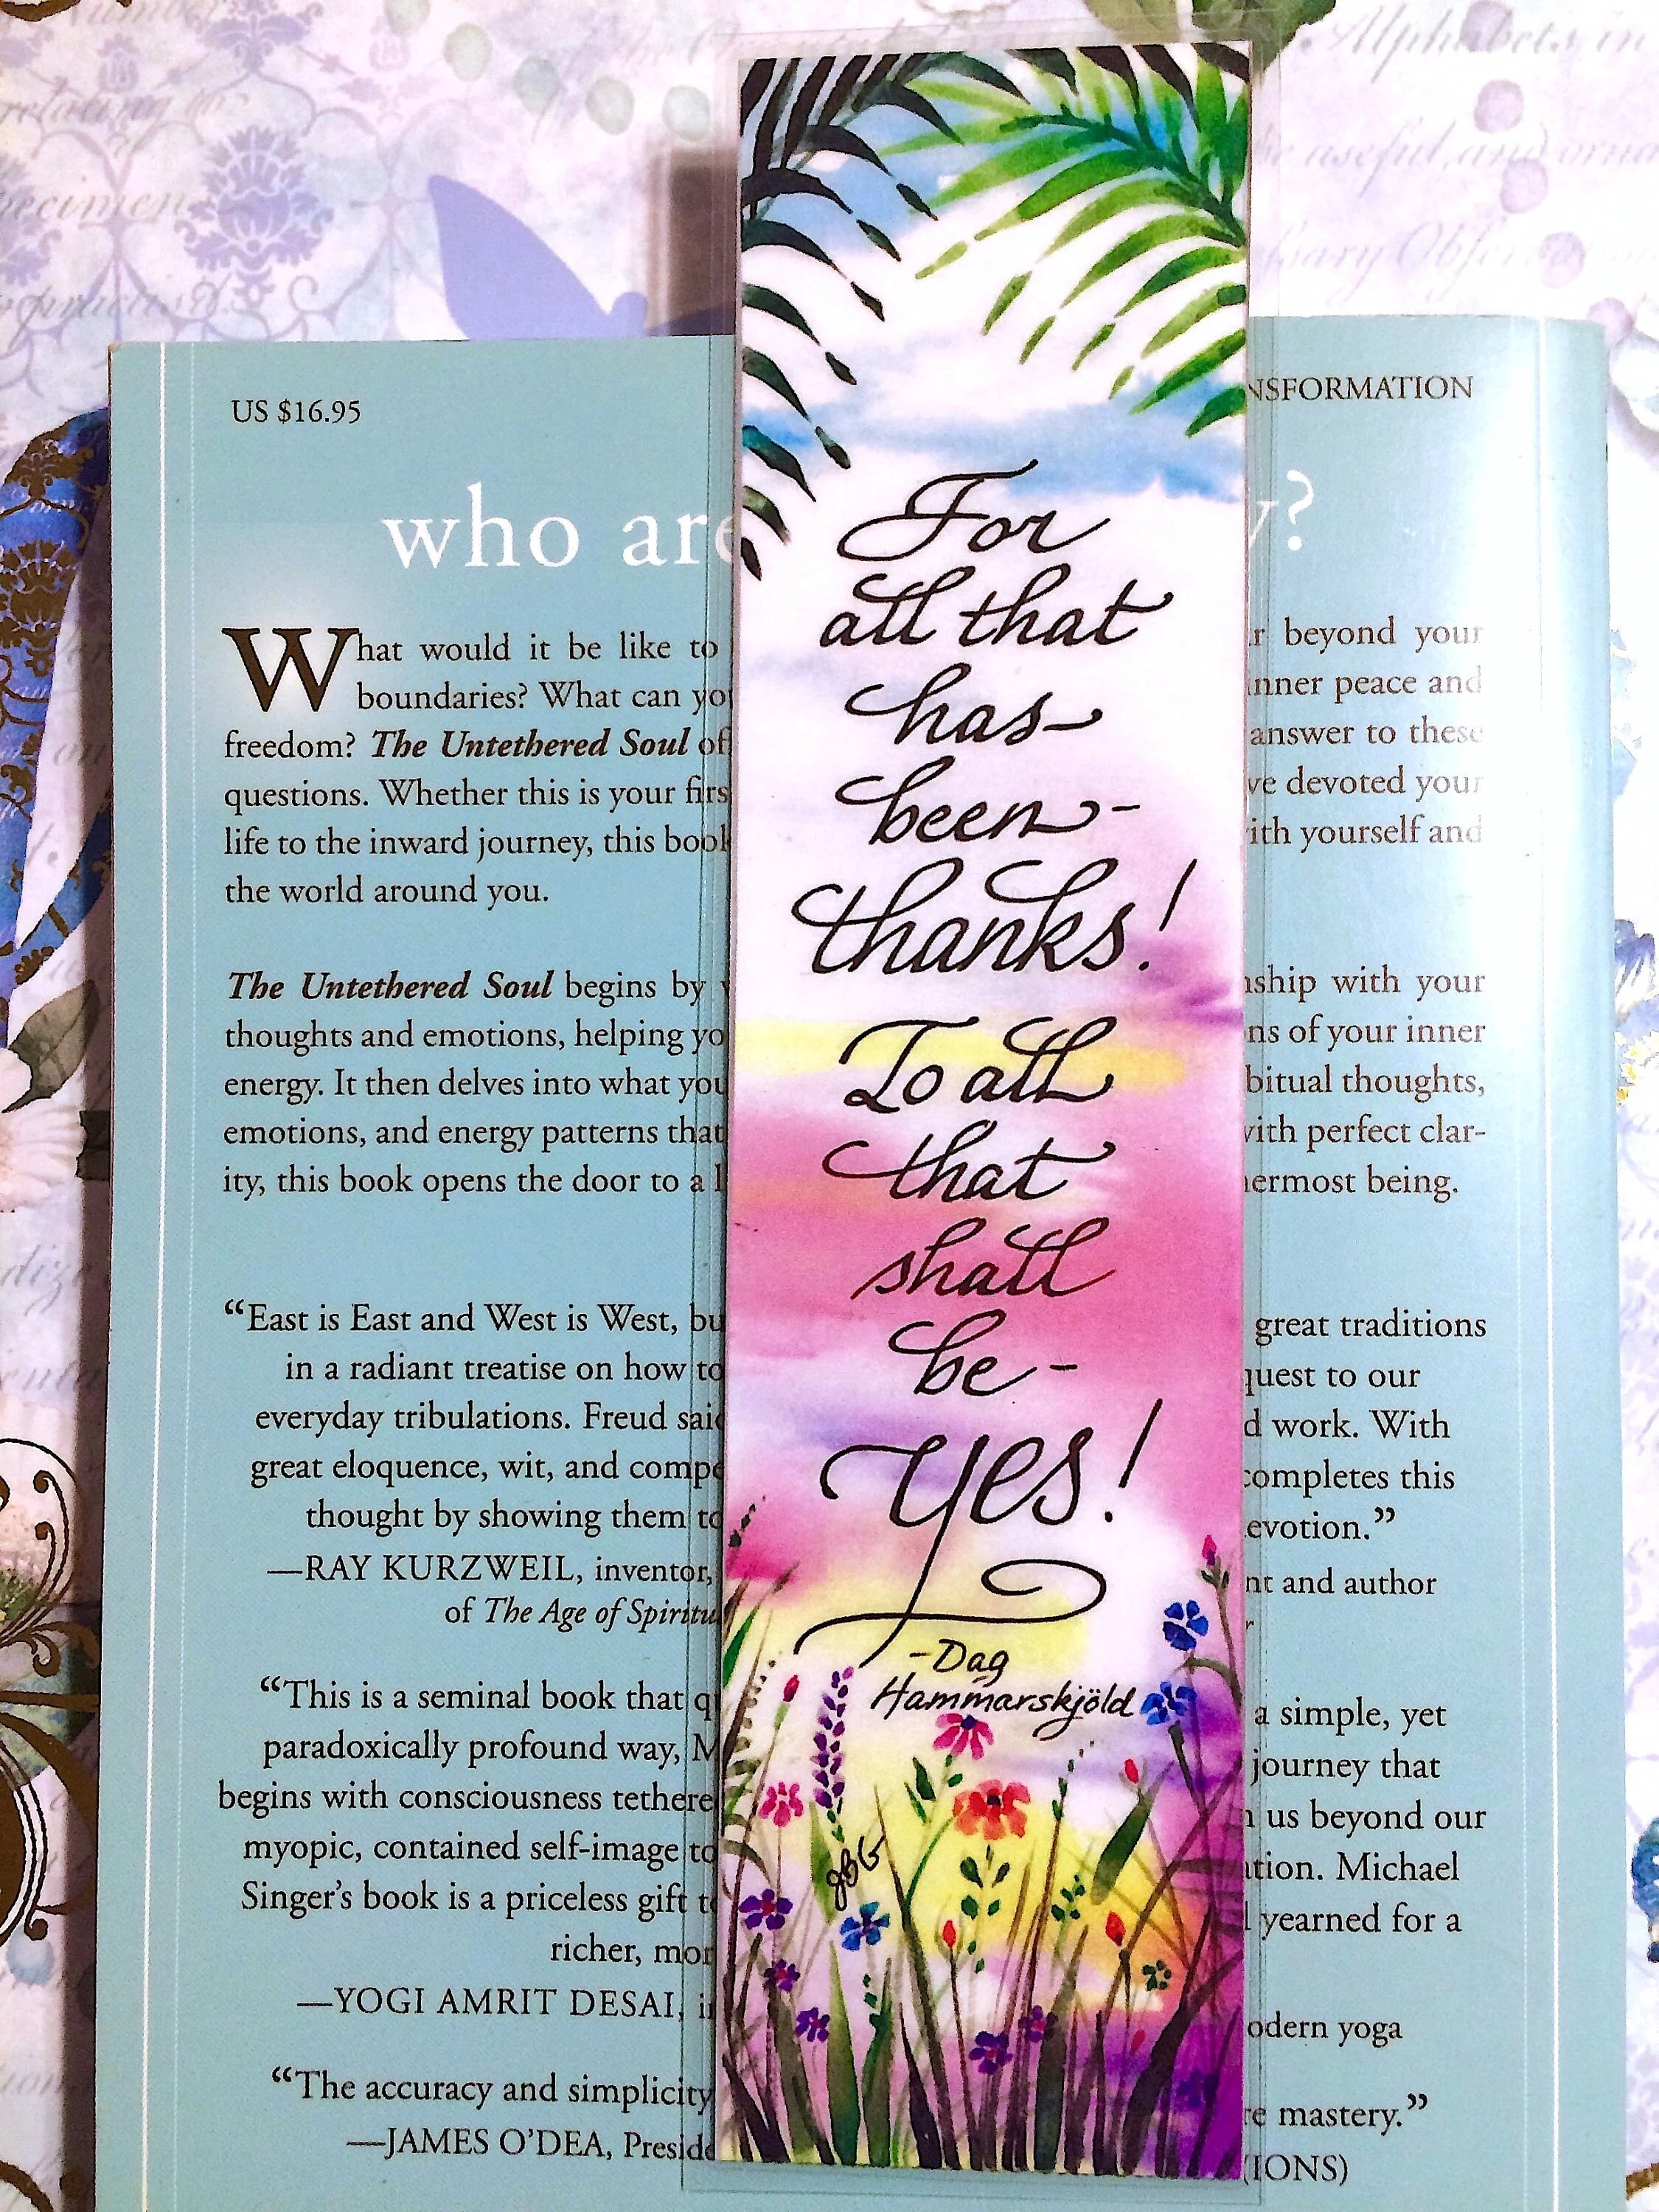 US $16.95
NSFORMATION
who are
y?
What would it be like to
r beyond your
boundaries? What can yo
inner peace and
freedom? The Untethered Soul of
answer to these
questions. Whether this is your firs
ve devoted your
life to the inward journey, this book
ith yourself and
the world around you.
The Untethered Soul begins by
nship with your
thoughts and emotions, helping yo
ns of your inner
energy. It then delves into what you
bitual thoughts,
emotions, and energy patterns that
with perfect clar-
ity, this book opens the door to a l
nermost being.
“East is East and West is West, bu
great traditions
in a radiant treatise on how to
quest to our
everyday tribulations. Freud said
d work. With
great eloquence, wit, and compe
completes this
thought by showing them to
evotion.”
—RAY KURZWEIL, inventor,
nt and author
of The Age of Spiritu
r
“This is a seminal book that q
a simple, yet
paradoxically profound way, M
journey that
begins with consciousness tethere
us beyond our
myopic, contained self-image to
tion. Michael
Singer’s book is a priceless gift t
yearned for a
richer, mor
—YOGI AMRIT DESAI, i
odern yoga
“The accuracy and simplicity
re mastery.”
—JAMES O’DEA, Preside
IONS)
For
all that
has-
been-
thanks!
To all
that
shall
be-
yes!
-Dag
Hammarskjöld
JBG
Alphabets, in
relating to
be useful, and orna
pecimen
practised.